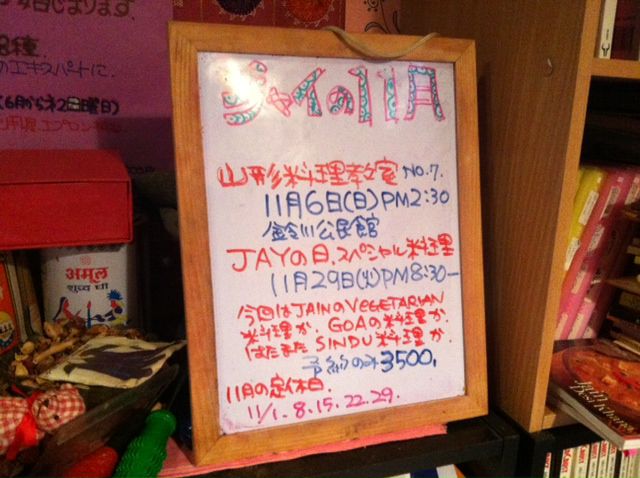 ジャイの11月
山形料理教室 NO.7.
11月6日(日)PM2:30
鈴川公民館
JAYの日.スペシャル料理
11月29日(火)PM8:30ー
今回はJAINのVEGETARIAN
料理か. GOAの料理か
はたまた SINDU料理か.
予約のみ3500,
11月の定休日.
11/1.8.15.22.29.
のエキスパートに.
अमूल
शुध्ध घी